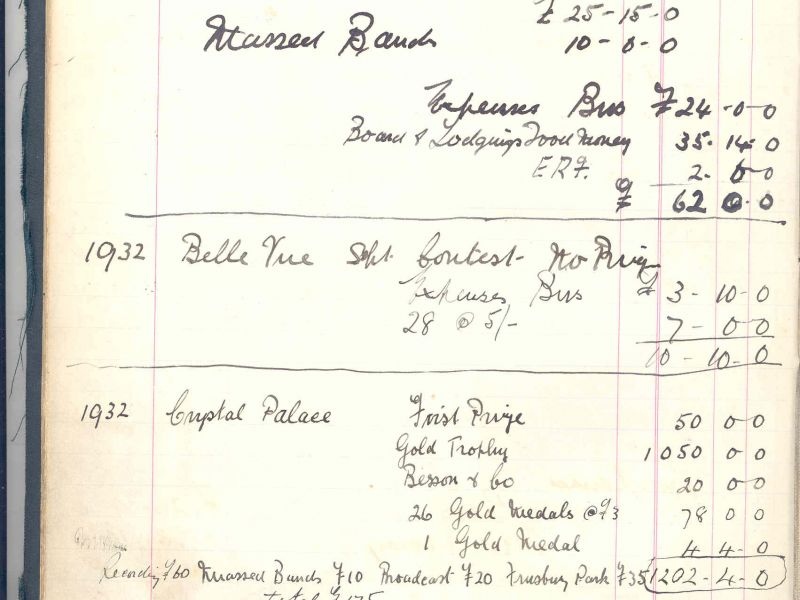 £ 25-15-0
Massed Bands 10-0-0
Expenses Bus £ 24-0-0
Board & Lodgings Food Money 35-14-0
2-0-0
£ 62 0-0
1932 Belle Vue Sept. Contest - No Prize
Expenses Bus £ 3-10-0
28 @ 5/- 7-0-0
10-10-0
1932 Crystal Palace First Prize 50 0-0
Gold Trophy 1050 0-0
Besson & Co 20 0-0
26 Gold Medals @ £3 78 0 0
1 Gold Medal 4-4-0
Recording £60 Massed Bands £10 Broadcast £20 Finsbury Park £35 1202-4-0